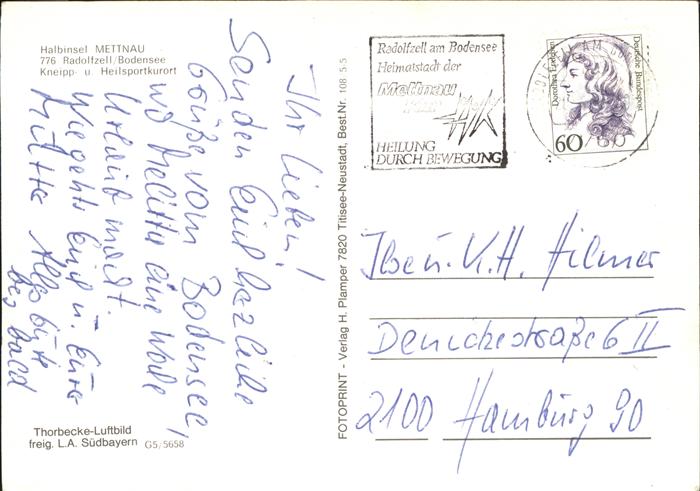 Halbinsel METTNAU
776 Radolfzell/Bodensee
Kneipp- u. Heilsportkurort
Ihr Lieben!
Senden Euch herzliche
Grüße vom Bodensee,
wo Melitta eine Woche
Urlaub macht.
Wie gehts Euch u. Eurer
Mutter Alles Gute
bis bald
Thorbecke-Luftbild
freig. L.A. Südbayern G5/5658
FOTOPRINT - Verlag H. Plamper 7820 Titisee-Neustadt, Best.Nr. 108 5.5
Radolfzell am Bodensee
Heimatstadt der
Mettnau
Kur
HEILUNG
DURCH BEWEGUNG
Dorothea Erxleben
Deutsche Bundespost
60
Ilse u. K.H. Hilmer
Denickestraße 6 II
2100 Hamburg 90